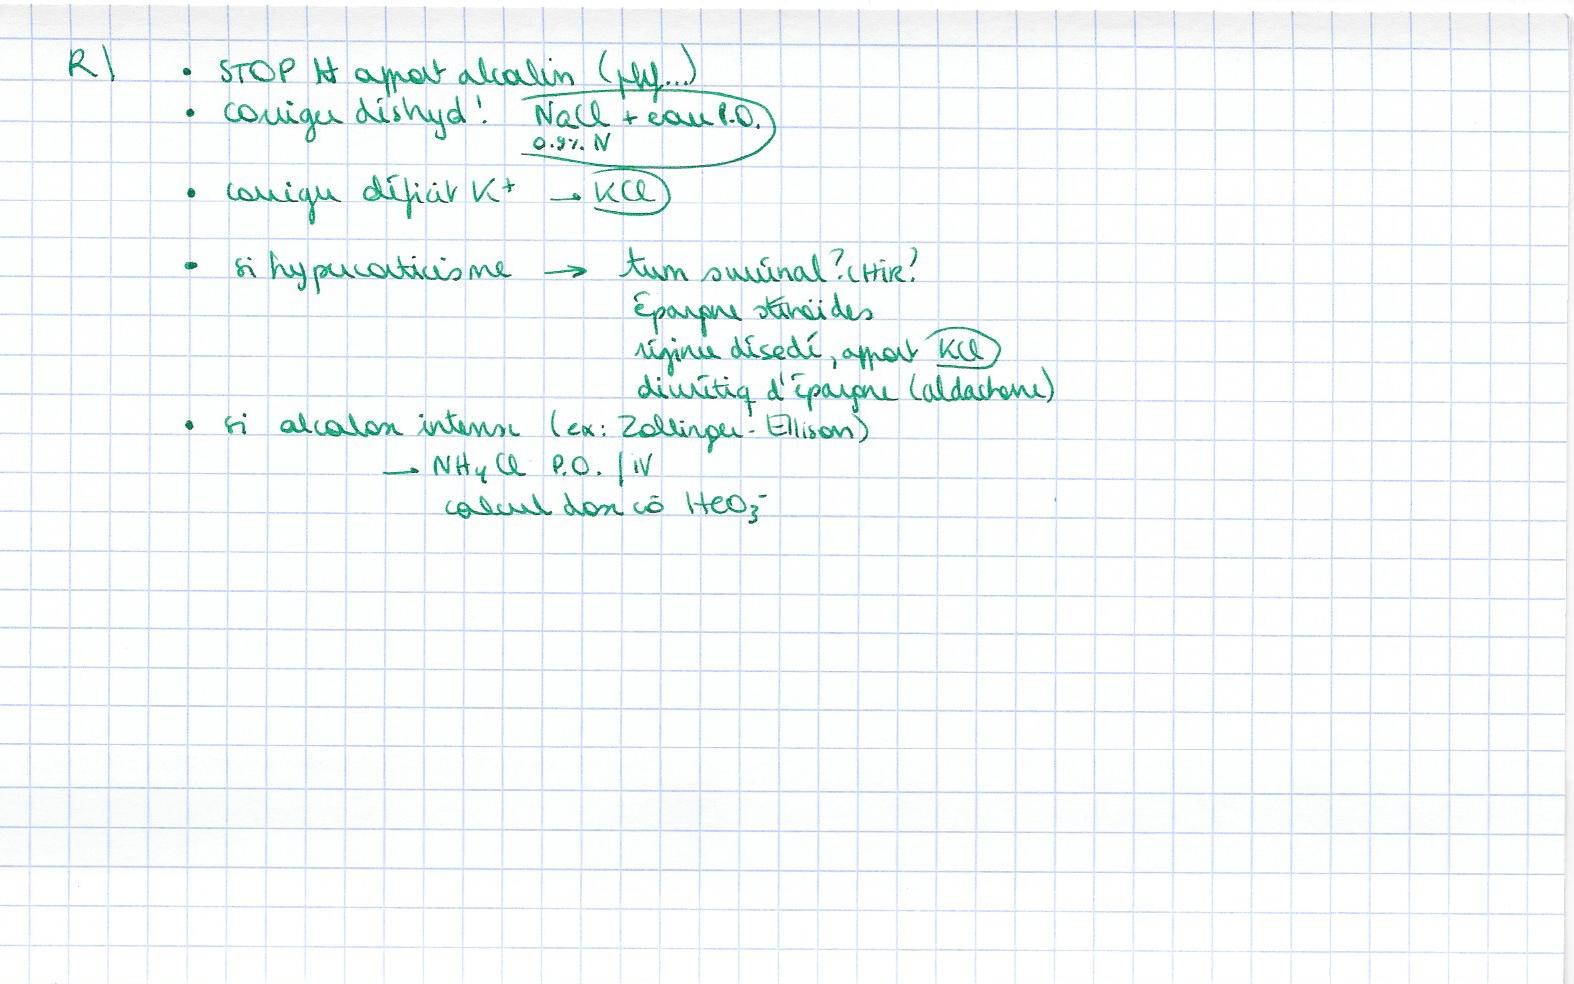 R/ • STOP tt apport alcalin (phy...)
• corriger déshyd! NaCl + eau P.O.
0.9% IV
• corriger déficit K+ → KCl
• si hypercorticisme → tum surrénal? CHIR?
Épargne stéroïdes
régime désodé, apport KCl
diurétiq d'épargne (aldactone)
• si alcalose intense (ex: Zollinger-Ellison)
→ NH4Cl P.O. / IV
calcul dose cô HCO3-